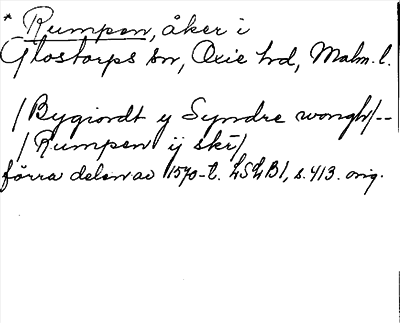 * Rumpen, åker i
Glostorps sn, Oxie hd, Malm. l.
/Bygiordt y Syndre wongh/--
/Rumpen ij ski/
förra delen av 1570-t. LSLB1, s. 413. orig.